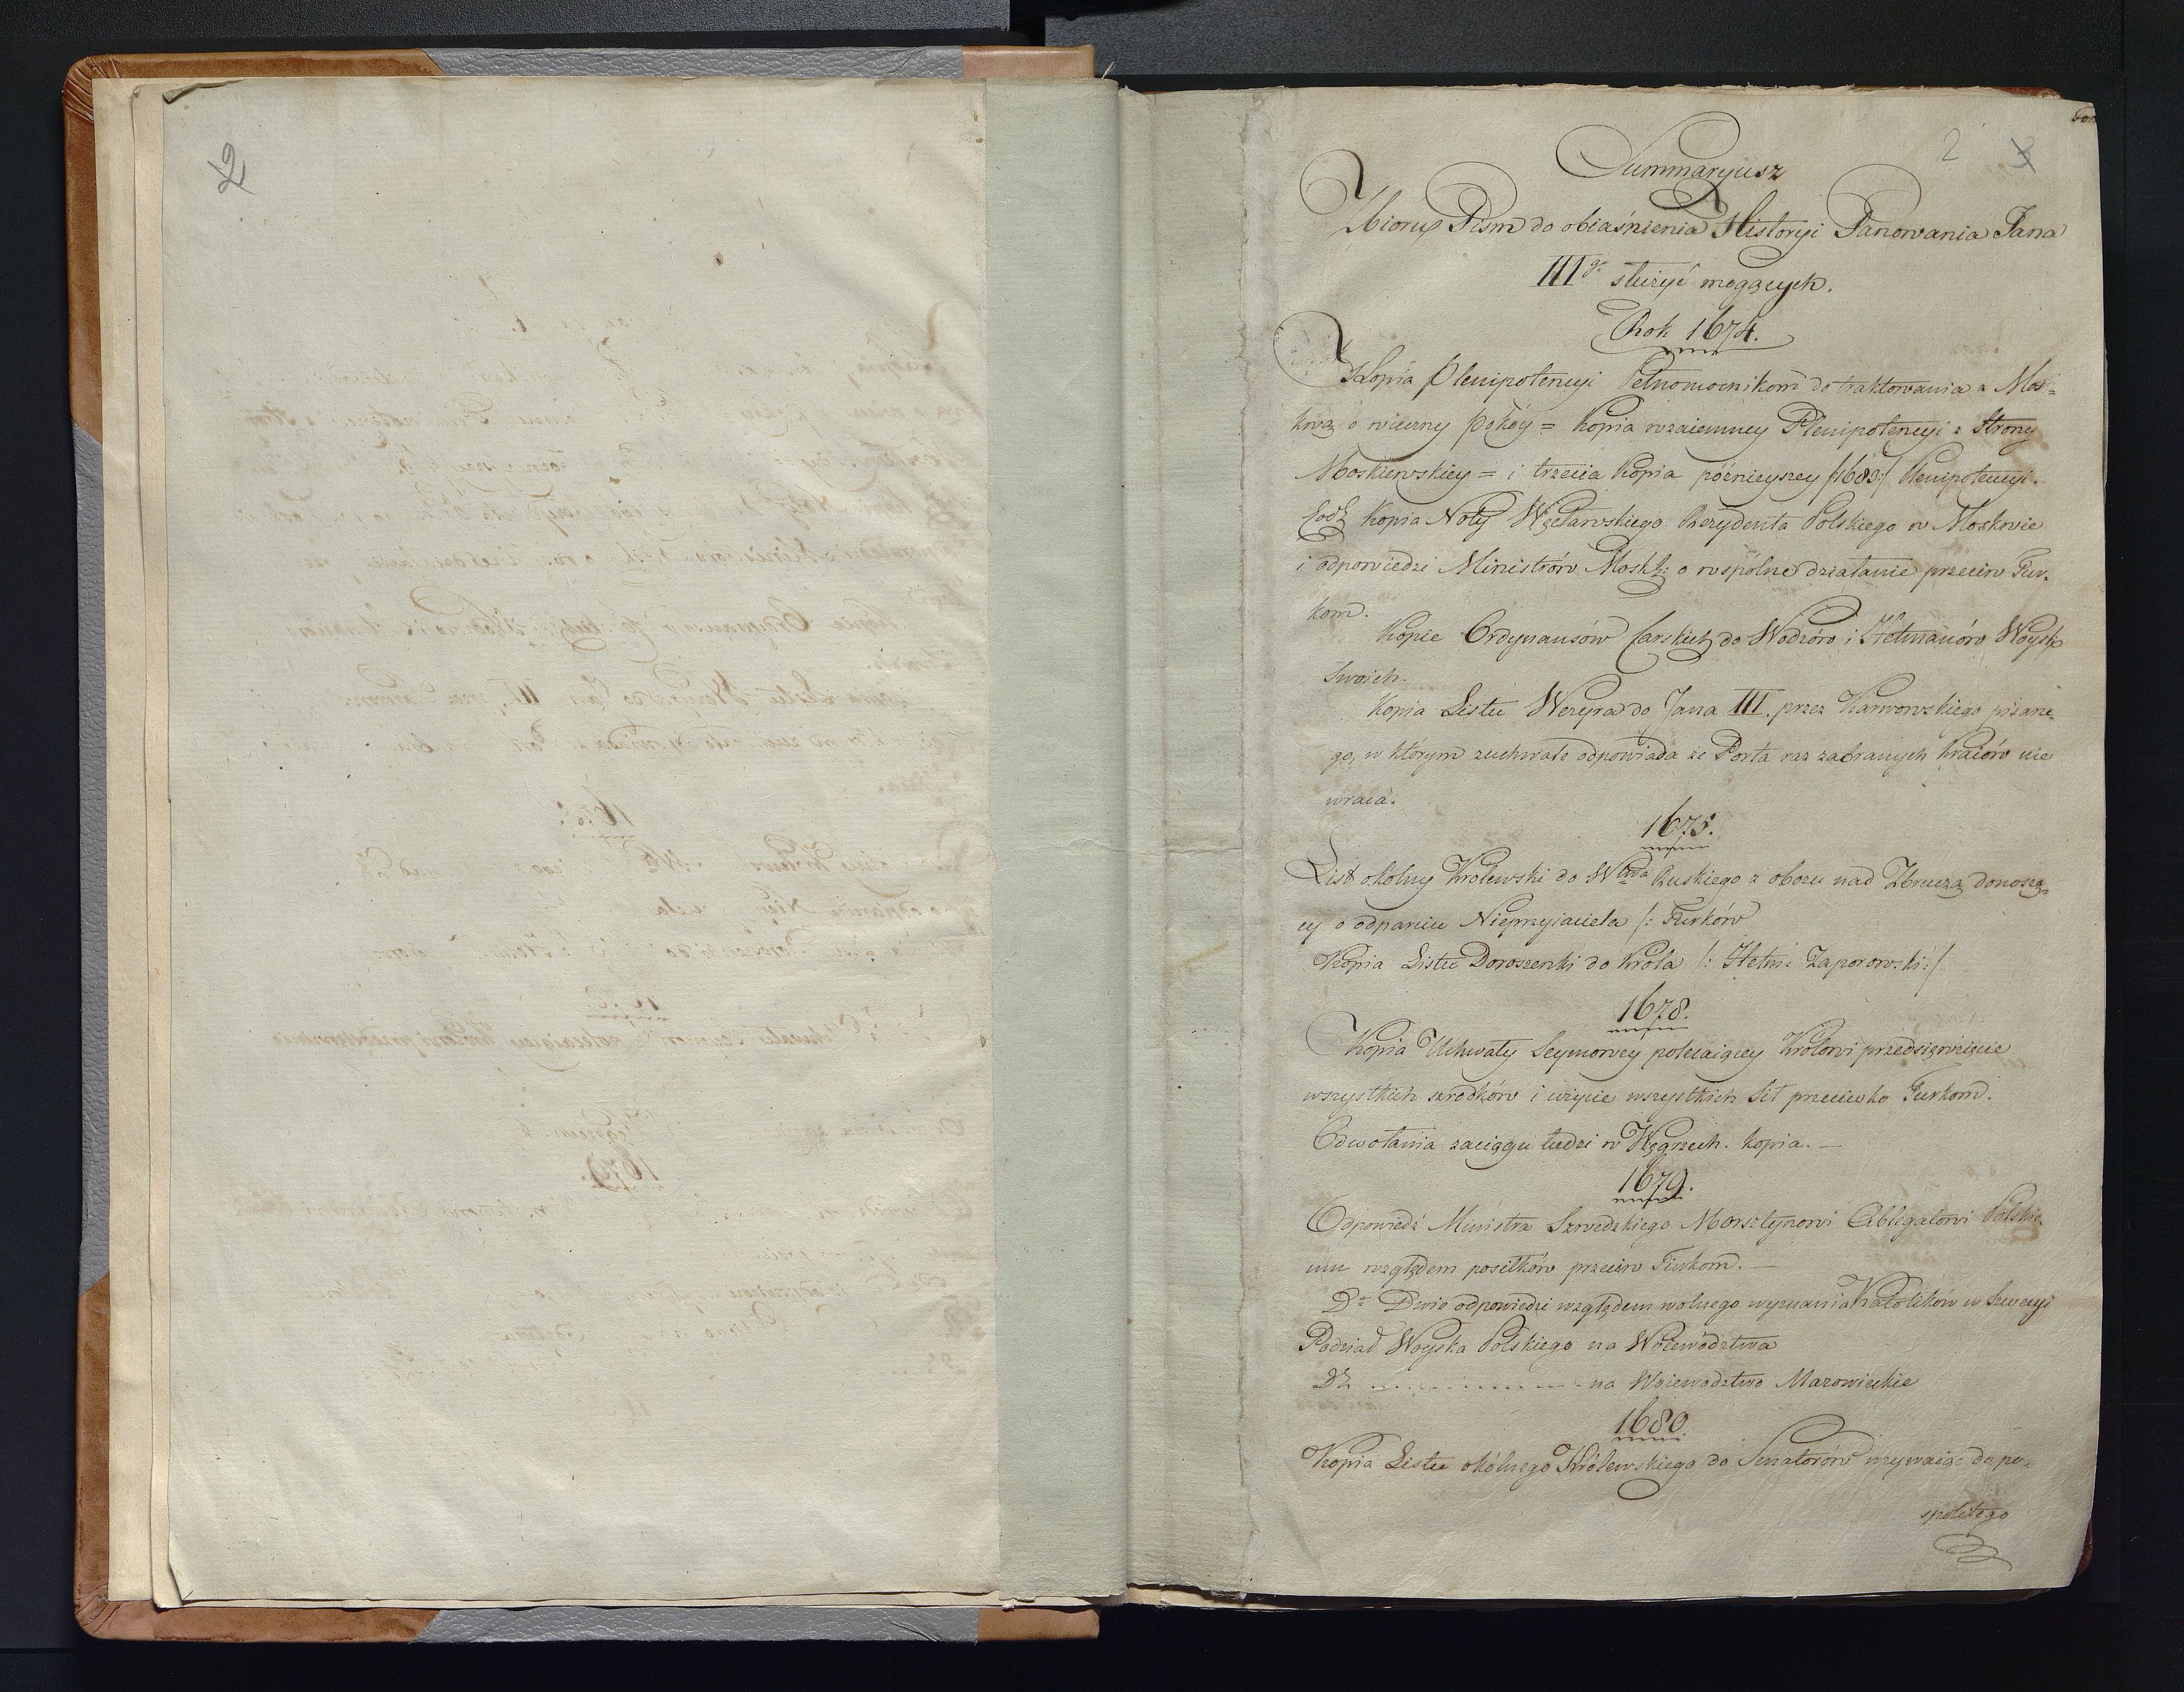 2
2
Tom
Summaryusz
Zbioru Pism do obiaśnienia Historyi Panowania Jana
IIIgo służyć mogących.
Rok 1674.
Kopia Plenipotencyi Pełnomocnikom do traktowania z Mos=
kwą o wieczny pokóy = Kopia wzaiemney Plenipotencyi z Strony
Moskiewskiey = i trzecia Kopia późnieyszey /:1683:/ Plenipotencyi.
Kopia Noty Węsławskiego Rezydenta Polskiego w Moskwie
i odpowiedzi Ministrów Mosk: o wspólne działanie przeciw Tur=
kom.
Kopie Ordynansów Carskich do Wodzów i Hetmanów Woysk
swoich.
Kopia Listu Wezyra do Jana III. przez Karwowskiego pisane=
go, w którym zuchwale odpowiada że Porta raz zabranych kraiów nie
wraca.
1675.
List okólny Królewski do Wdztwa Ruskiego z obozu nad Zbruczą donoszą=
cy o odparciu Nieprzyjaciela /: Turków
Kopia Listu Doroszenki do Króla /: Hetm: Zaporowski:/
1678.
Kopia Uchwały Seymowey polecaiącey Królowi przedsięwzięcie
wszystkich szrodków i użycie wszystkich Sił przeciwko Turkom.
Odwołania zaciągu ludzi w Węgrzech. kopia. —
1679.
Odpowiedź Ministra Szwedzkiego Morsztynowi Ablegatowi Polskie=
mu względem posiłków przeciw Turkom. —
Do Dwie odpowiedzi względem wolnego wyznania Katolików w Szwecyi
Podział Woyska Polskiego na Woiewództwa
Do ............ na Woiewództwo Mazowieckie
1680.
Kopia Listu okólnego Królewskiego do Senatorów wzywaiąc do po=
spolitego